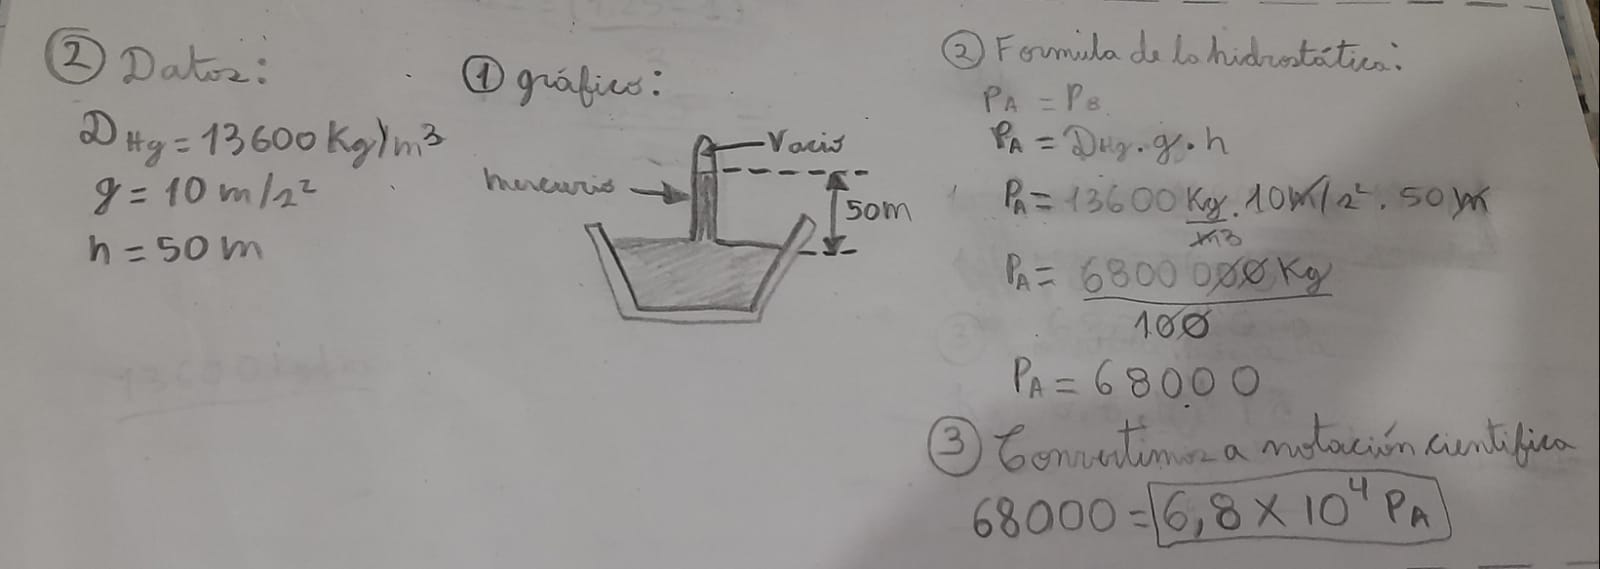 ② Datos:
D Hg = 13600 Kg/m³
g = 10 m/s²
h = 50 m
① gráfico:
Vacio
mercurio
50m
② Formula de la hidrostática:
PA = PB
PA = DHg . g . h
PA = 13600 Kg/m3 . 10m/s² . 50 m
PA = 6800 000 Kg
100
PA = 68000
③ Convertimos a notación cientifica
68000 = 6,8 × 10⁴ PA